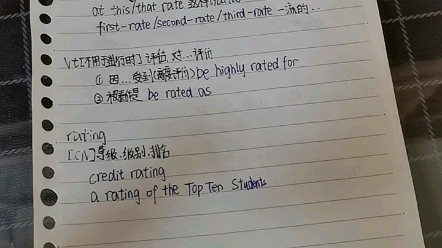 at this/that rate
first-rate/second-rate/third-rate 一流的...
Vt[不用于进行时] 评估, 对...评价
① 因...受到(高度评价) be highly rated for
② 被看作是 be rated as
rating
[CN] 等级.级别.排名
credit rating
a rating of the Top Ten Students